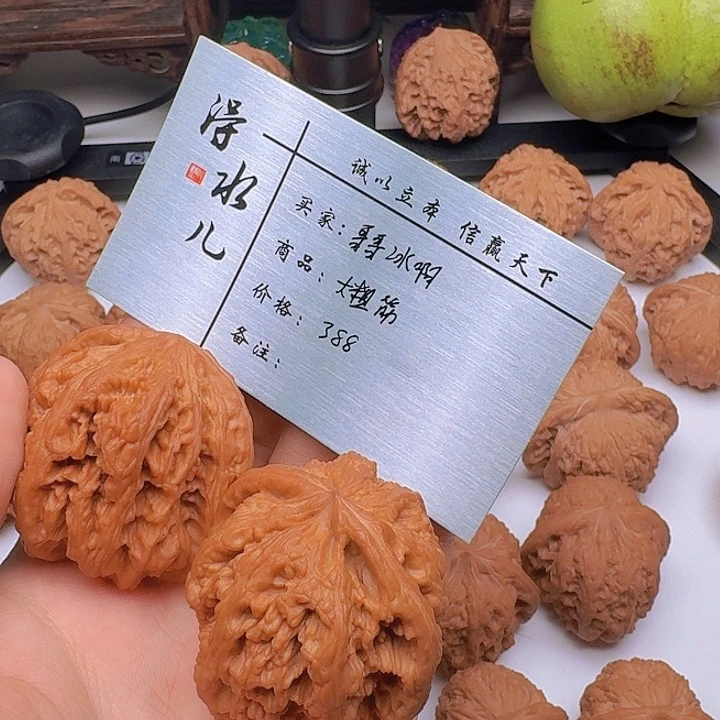 水儿
诚以立本 信赢天下
买家：冰啊
商品：大粗筋
价格：388
备注：